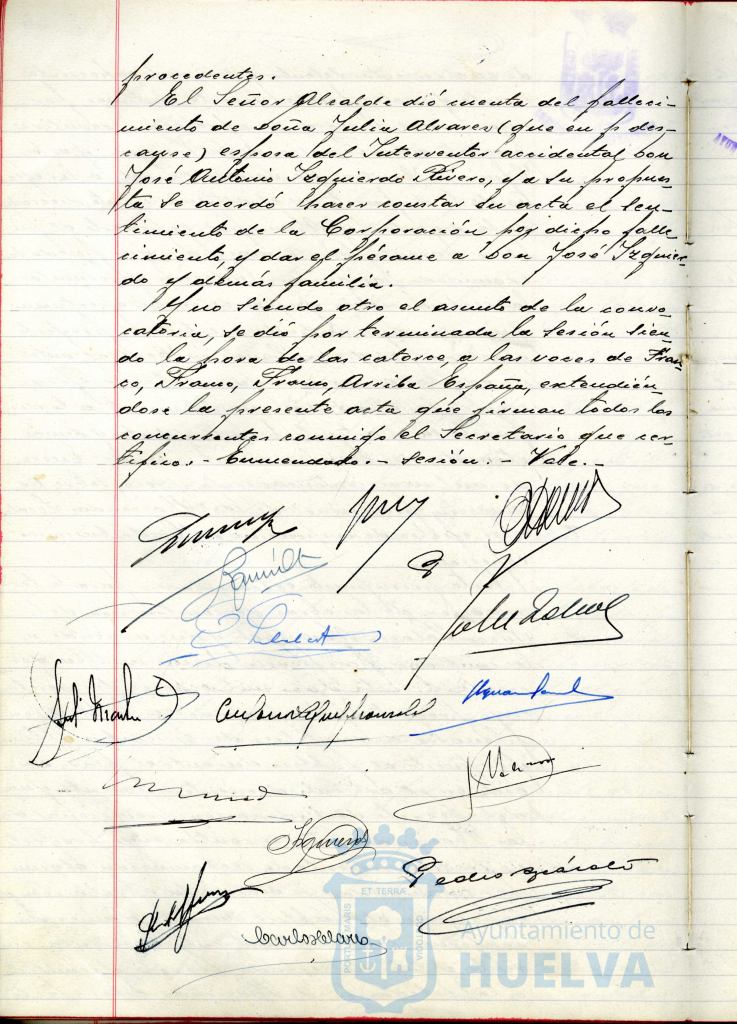 procedentes.
El Señor Alcalde dió cuenta del falleci-
miento de Doña Julia Alvarez (que en p. des-
canse) esposa del Interventor accidental Don
José Antonio Izquierdo Rivero, y a su propues-
ta se acordó hacer constar en acta el sen-
timiento de la Corporación por dicho falle-
cimiento, y dar el pésame a Don José Izquier-
do y demás familia.
Y no siendo otro el asunto de la convo-
catoria, se dió por terminada la sesión sien-
do la hora de las catorce, a las voces de Fran-
co, Franco, Franco, Arriba España, extendién-
dose la presente acta que firman todos los
concurrentes conmigo el Secretario que cer-
tifico.- Enmendado.- sesión.- Vale.-
Figueroa
Pedro
Carlos
ET TERRAE
PORTUS MARIS
CUSTODIA
Ayuntamiento de
HUELVA